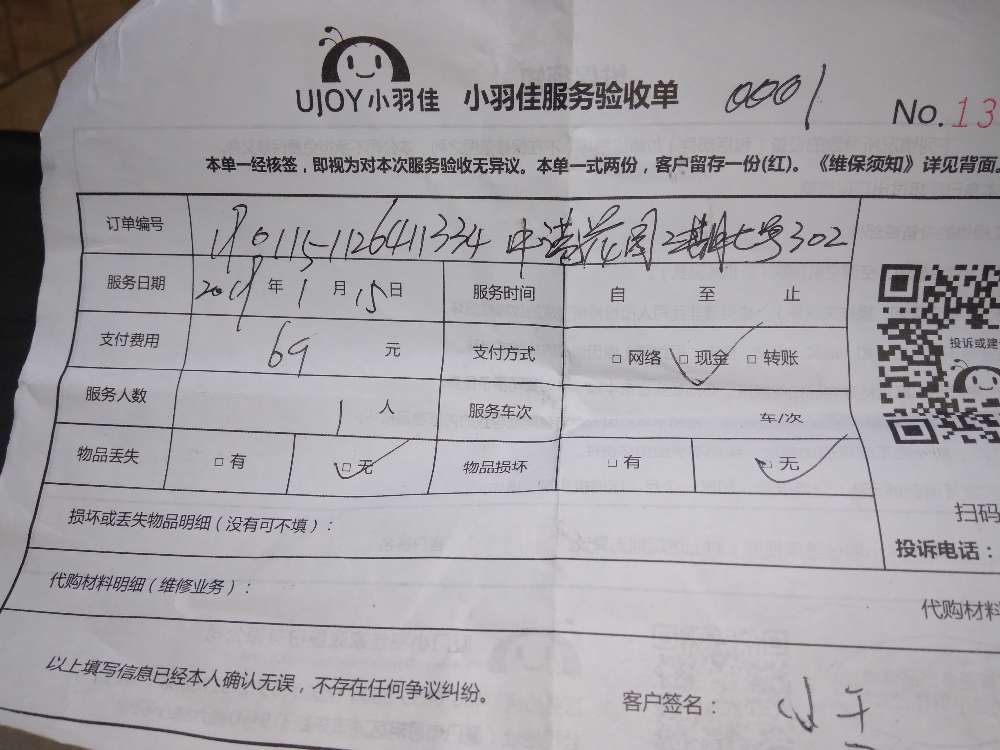 UJOY 小羽佳 小羽佳服务验收单 0001 No.13
本单一经核签，即视为对本次服务验收无异议。本单一式两份，客户留存一份(红)。《维保须知》详见背面。
订单编号 0115-1126411334 中港花园2期七号302
服务日期 2019年1月15日 服务时间 自 至 止
支付费用 69 元 支付方式 □网络 □现金 □转账
投诉或建
服务人数 1 人 服务车次 车/次
物品丢失 □有 □无 物品损坏 □有 □无
损坏或丢失物品明细（没有可不填）：
扫码
投诉电话：
代购材料明细（维修业务）：
代购材料
以上填写信息已经本人确认无误，不存在任何争议纠纷。
客户签名：